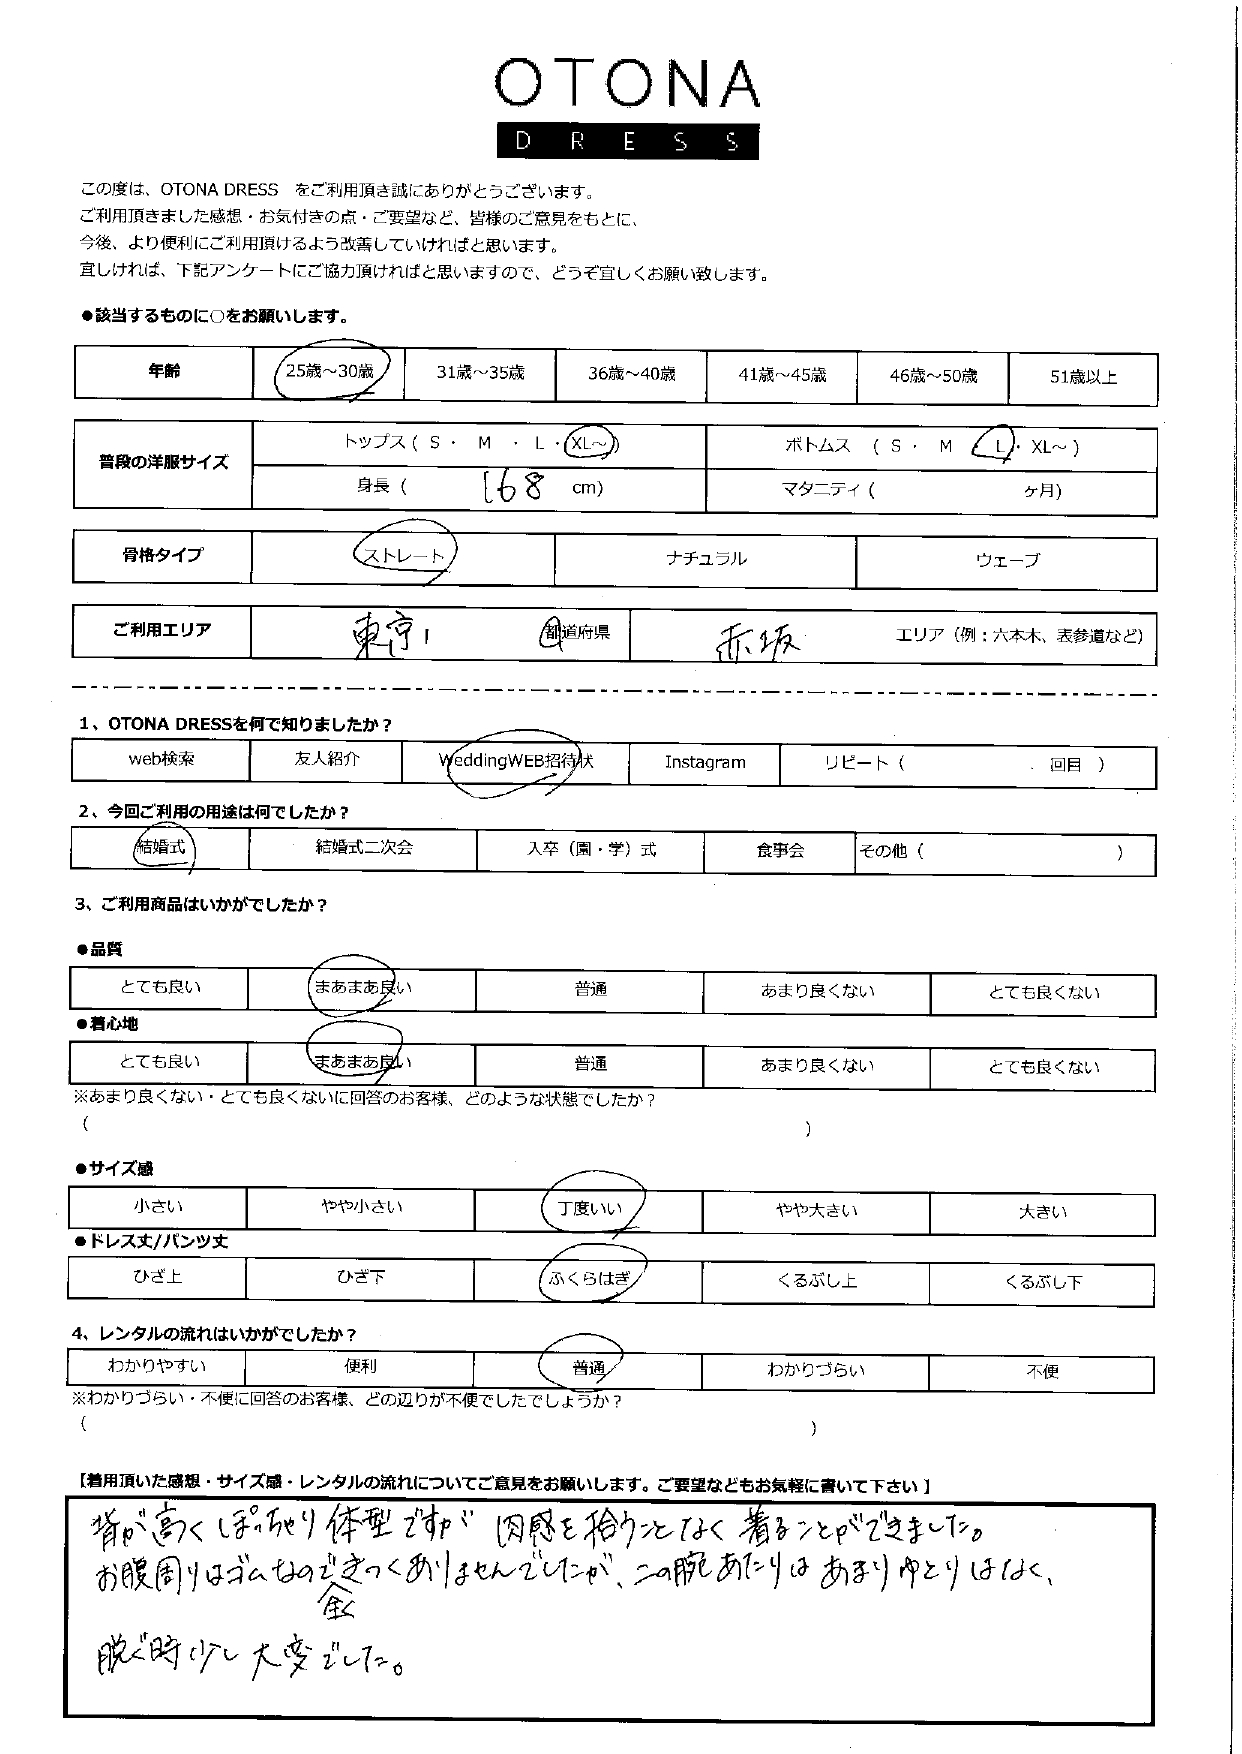 OTONA
DRESS
この度は、OTONA DRESS をご利用頂き誠にありがとうございます。
ご利用頂きました感想・お気付きの点・ご要望など、皆様のご意見をもとに、
今後、より便利にご利用頂けるよう改善していければと思います。
宜しければ、下記アンケートにご協力頂ければと思いますので、どうぞ宜しくお願い致します。
●該当するものに○をお願いします。
年齢 25歳～30歳 31歳～35歳 36歳～40歳 41歳～45歳 46歳～50歳 51歳以上
普段の洋服サイズ トップス ( S ・ M ・ L ・ XL～ ) ボトムス ( S ・ M ・ L ・ XL～ )
身長 ( 168 cm) マタニティ ( ヶ月)
骨格タイプ ストレート ナチュラル ウェーブ
ご利用エリア 東京 都道府県 赤坂 エリア（例：六本木、表参道など）
1、OTONA DRESSを何で知りましたか？
web検索 友人紹介 WeddingWEB招待状 Instagram リピート ( 回目 )
2、今回ご利用の用途は何でしたか？
結婚式 結婚式二次会 入卒（園・学）式 食事会 その他 ( )
3、ご利用商品はいかがでしたか？
●品質
とても良い まあまあ良い 普通 あまり良くない とても良くない
●着心地
とても良い まあまあ良い 普通 あまり良くない とても良くない
※あまり良くない・とても良くないに回答のお客様、どのような状態でしたか？
( )
●サイズ感
小さい やや小さい 丁度いい やや大きい 大きい
●ドレス丈/パンツ丈
ひざ上 ひざ下 ふくらはぎ くるぶし上 くるぶし下
4、レンタルの流れはいかがでしたか？
わかりやすい 便利 普通 わかりづらい 不便
※わかりづらい・不便に回答のお客様、どの辺りが不便でしたでしょうか？
( )
【着用頂いた感想・サイズ感・レンタルの流れについてご意見をお願いします。ご要望などもお気軽に書いて下さい】
背が高くぽっちゃり体型ですが 肉感を拾うことなく着ることができました。
お腹周りはゴムなので全くきつくありませんでしたが、二の腕あたりはあまりゆとりはなく、
脱ぐ時少し大変でした。